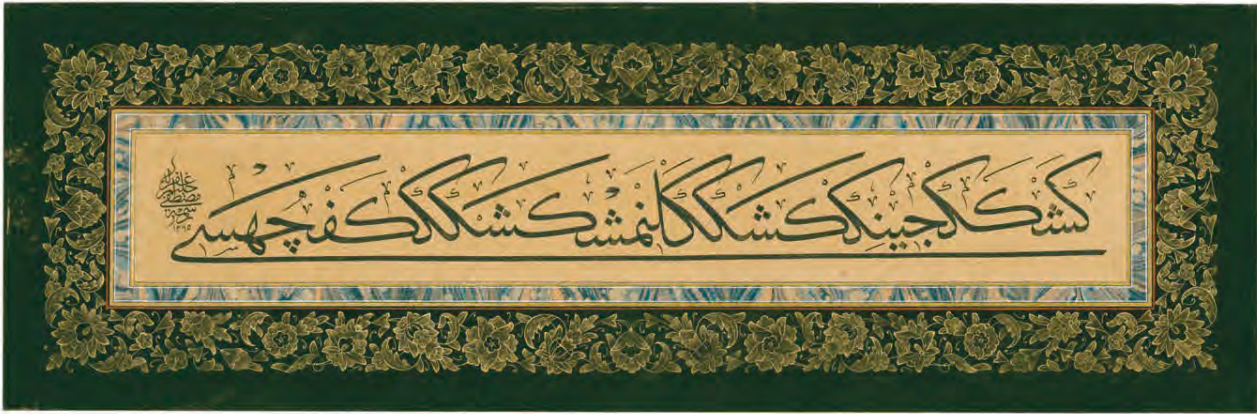 كشككجينك كشككلنمش كشكك كفچهسی